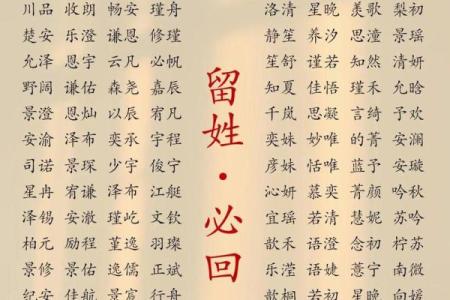 川品 收朗 畅安 瑾舟
楚安 乐澄 谦恩 修瑾
允泽 恩宇 云凡 必帆
野阔 景谦 森尧 嘉辰
景澄 恩灿 以辰 宥凡
安渝 泽布 奕承 宇程
司诺 景琛 少宇 俊宁
星冉 宥谦 泽布 江艇
泽锡 安澈 瑾屹 文钦
柏元 励程 堇逸 羽璨
景修 景佑 逸儒 正斌
纪安 佳航 景言 行舟
留姓·必回
洛清 星晚 羡歌 梨初
静笙 养汐 思潼 景瑶
笙舒 谨若 知然 清妍
知夏 佳悟 瑾禾 允晗
千岚 思凝 言绮 予欢
奕妹 妙唯 的菁 安澜
彦婷 恬唯 蓝予 安璇
沁妍 慕奕 菁颜 吟秋
宜瑶 若清 慧妮 苏吟
歆禾 语澄 念初 柠苏
乐滢 语婕 薏宁 南微
歆桐 若初 星晚 向媛